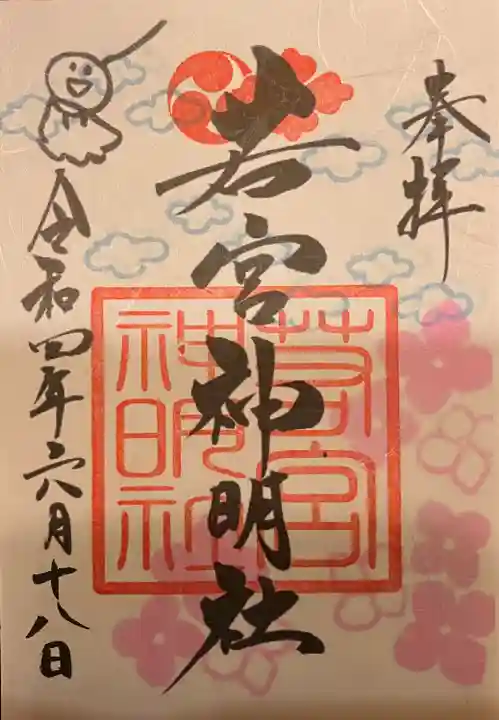 奉拝
若宮神明社
若宮
神明社
令和四年六月十八日